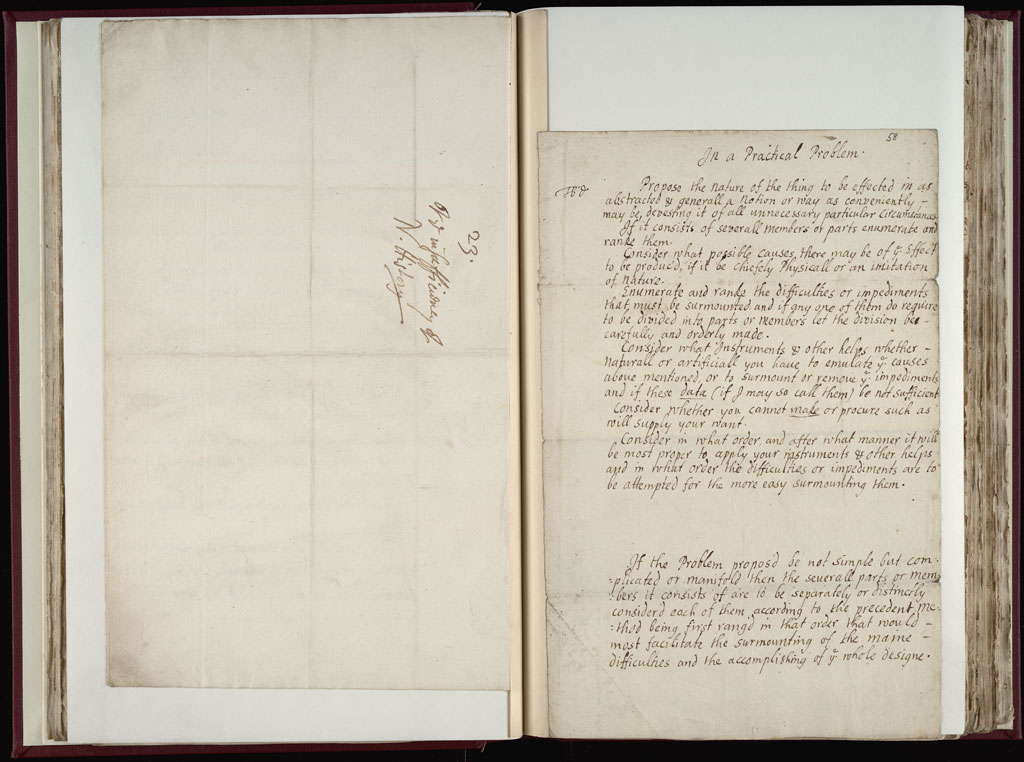 23.
of
N. History
58
In a Practical Problem.
Propose the nature of the thing to be effected in as
abstracted & generall a notion or way as conveniently -
may be, devesting it of all unnecessary particular circumstances
If it consists of severall members or parts enumerate and
range them.
Consider what possible causes there may be of yͤ Effect
to be produc'd, if it be chiefely Physicall or an imitation
of nature.
Enumerate and range the difficulties or impediments
that must be surmounted and if any one of them do require
to be divided into parts or members let the division bee -
carefully and orderly made.
Consider what Instruments & other helps whether -
naturall or artificiall you have to emulate yͤ causes
above mentioned, or to surmount or remove yͤ impediments
and if these data (if I may so call them) be not sufficient
Consider whether you cannot make or procure such as
will supply your want.
Consider in what order, and after what manner it will
be most proper to apply your instruments & other helps
and in what order the difficulties or impediments are to
be attempted for the more easy surmounting them.
If the Problem propos'd be not simple but com=
=plicated or manifold then the severall parts or mem
=bers it consists of are to be separately or distinctly
considerd each of them according to the precedent me=
=thod being first rang'd in that order that would -
most facilitate the surmounting of the maine -
difficulties and the accomplishing of yͤ whole designe.